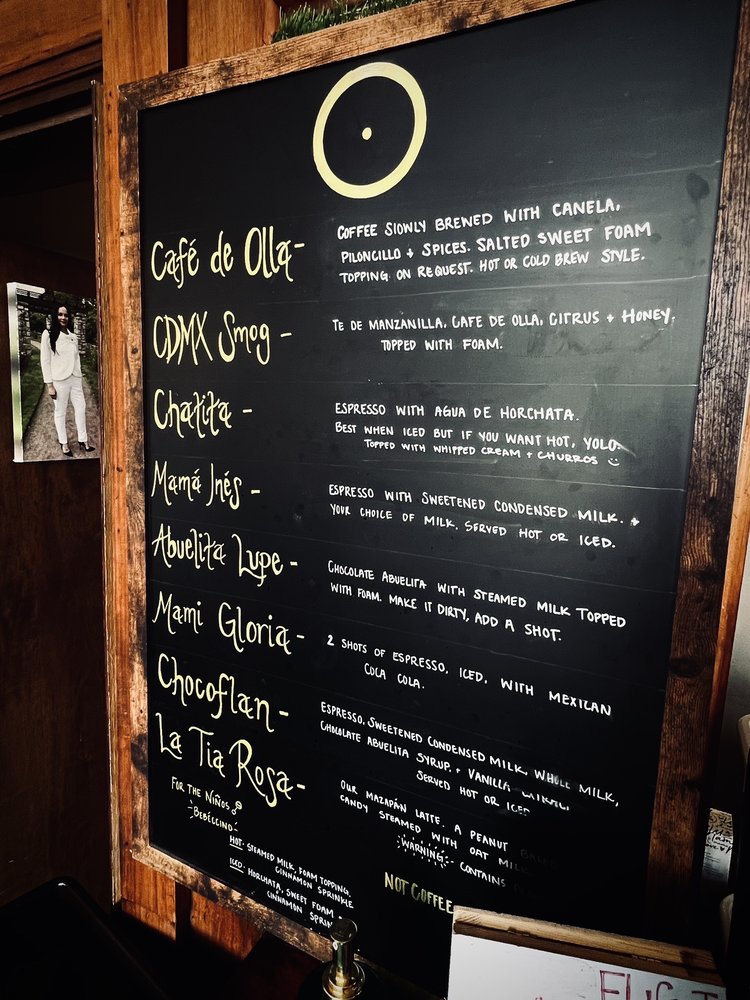 Café de Olla-
COFFEE SLOWLY BREWED WITH CANELA,
PILONCILLO + SPICES. SALTED SWEET FOAM
TOPPING ON REQUEST. HOT OR COLD BREW STYLE.
CDMX Smog -
TE DE MANZANILLA, CAFE DE OLLA, CITRUS + HONEY.
TOPPED WITH FOAM.
Chatita -
ESPRESSO WITH AGUA DE HORCHATA.
BEST WHEN ICED BUT IF YOU WANT HOT, YOLO.
TOPPED WITH WHIPPED CREAM + CHURROS ☺
Mamá Inés -
ESPRESSO WITH SWEETENED CONDENSED MILK. +
YOUR CHOICE OF MILK. SERVED HOT OR ICED.
Abuelita Lupe -
CHOCOLATE ABUELITA WITH STEAMED MILK TOPPED
WITH FOAM. MAKE IT DIRTY, ADD A SHOT.
Mami Gloria -
2 SHOTS OF ESPRESSO, ICED, WITH MEXICAN
COCA COLA.
Chocoflan -
ESPRESSO, SWEETENED CONDENSED MILK, WHOLE MILK,
CHOCOLATE ABUELITA SYRUP, + VANILLA
SERVED HOT OR ICED
La Tia Rosa-
OUR MAZAPÁN LATTE. A PEANUT
CANDY STEAMED WITH OAT
WARNING: CONTAINS
FOR THE NIÑOS
BEBÉCCINO
HOT: STEAMED MILK, FOAM TOPPING,
CINNAMON SPRINKLE
ICED: HORCHATA, SWEET FOAM
CINNAMON
NOT COFFEE